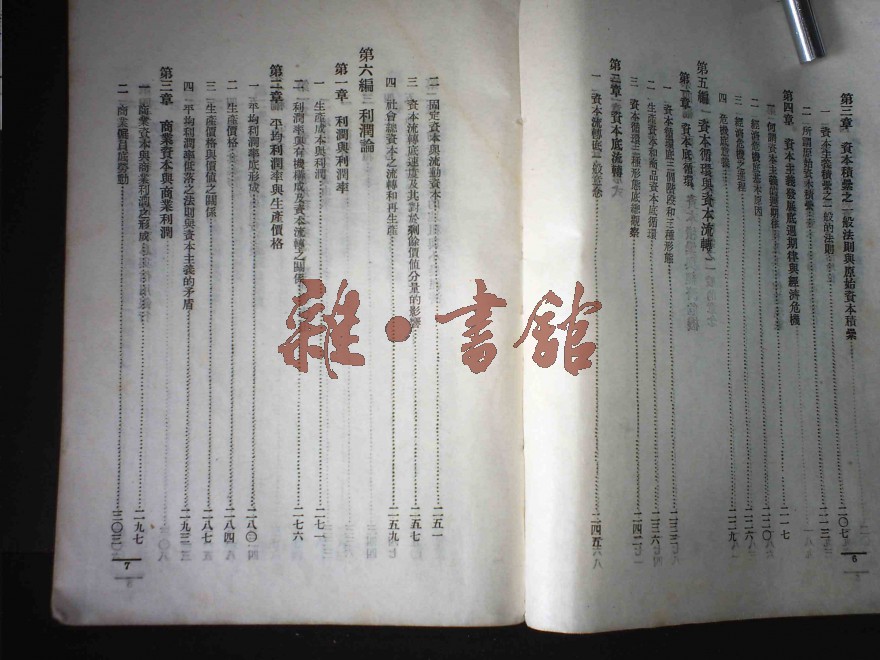 第三章 資本積纍之一般法則與原始資本積纍
一 資本主義積纍之一般的法則……二〇七
二 所謂原始資本積纍……二一三
第四章 資本主義發展底週期律與經濟危機
一 何謂資本主義底週期律……二一七
二 經濟危機底基本原因……二二〇
三 經濟危機之進程
四 危機底意義……二二九
第五編 資本循環與資本流轉
第一章 資本底循環
一 資本循環底三個階段和三種形態……二三三
二 生產資本和商品資本底循環……二三六
三 資本循環三種形態底總觀察……二四二
第二章 資本底流轉
一 資本流轉底一般意義……二四五
6
二 固定資本與流動資本……二五一
三 資本流轉底速度及其對於剩餘價值分量的影響……二五七
四 社會總資本之流轉和再生產……二五九
第六編 利潤論
第一章 利潤與利潤率
一 生產成本與利潤……二七一
二 利潤率與有機構成及資本流轉之關係……二七六
第二章 平均利潤率與生產價格
一 平均利潤率底形成……二八〇
二 生產價格……二八四
三 生產價格與價值之關係……二八七
四 平均利潤率低落之法則與資本主義的矛盾……二九三
第三章 商業資本與商業利潤
一 商業資本與商業利潤之形成……二九七
二 商業僱員底勞動……三〇三
7
雜·書館